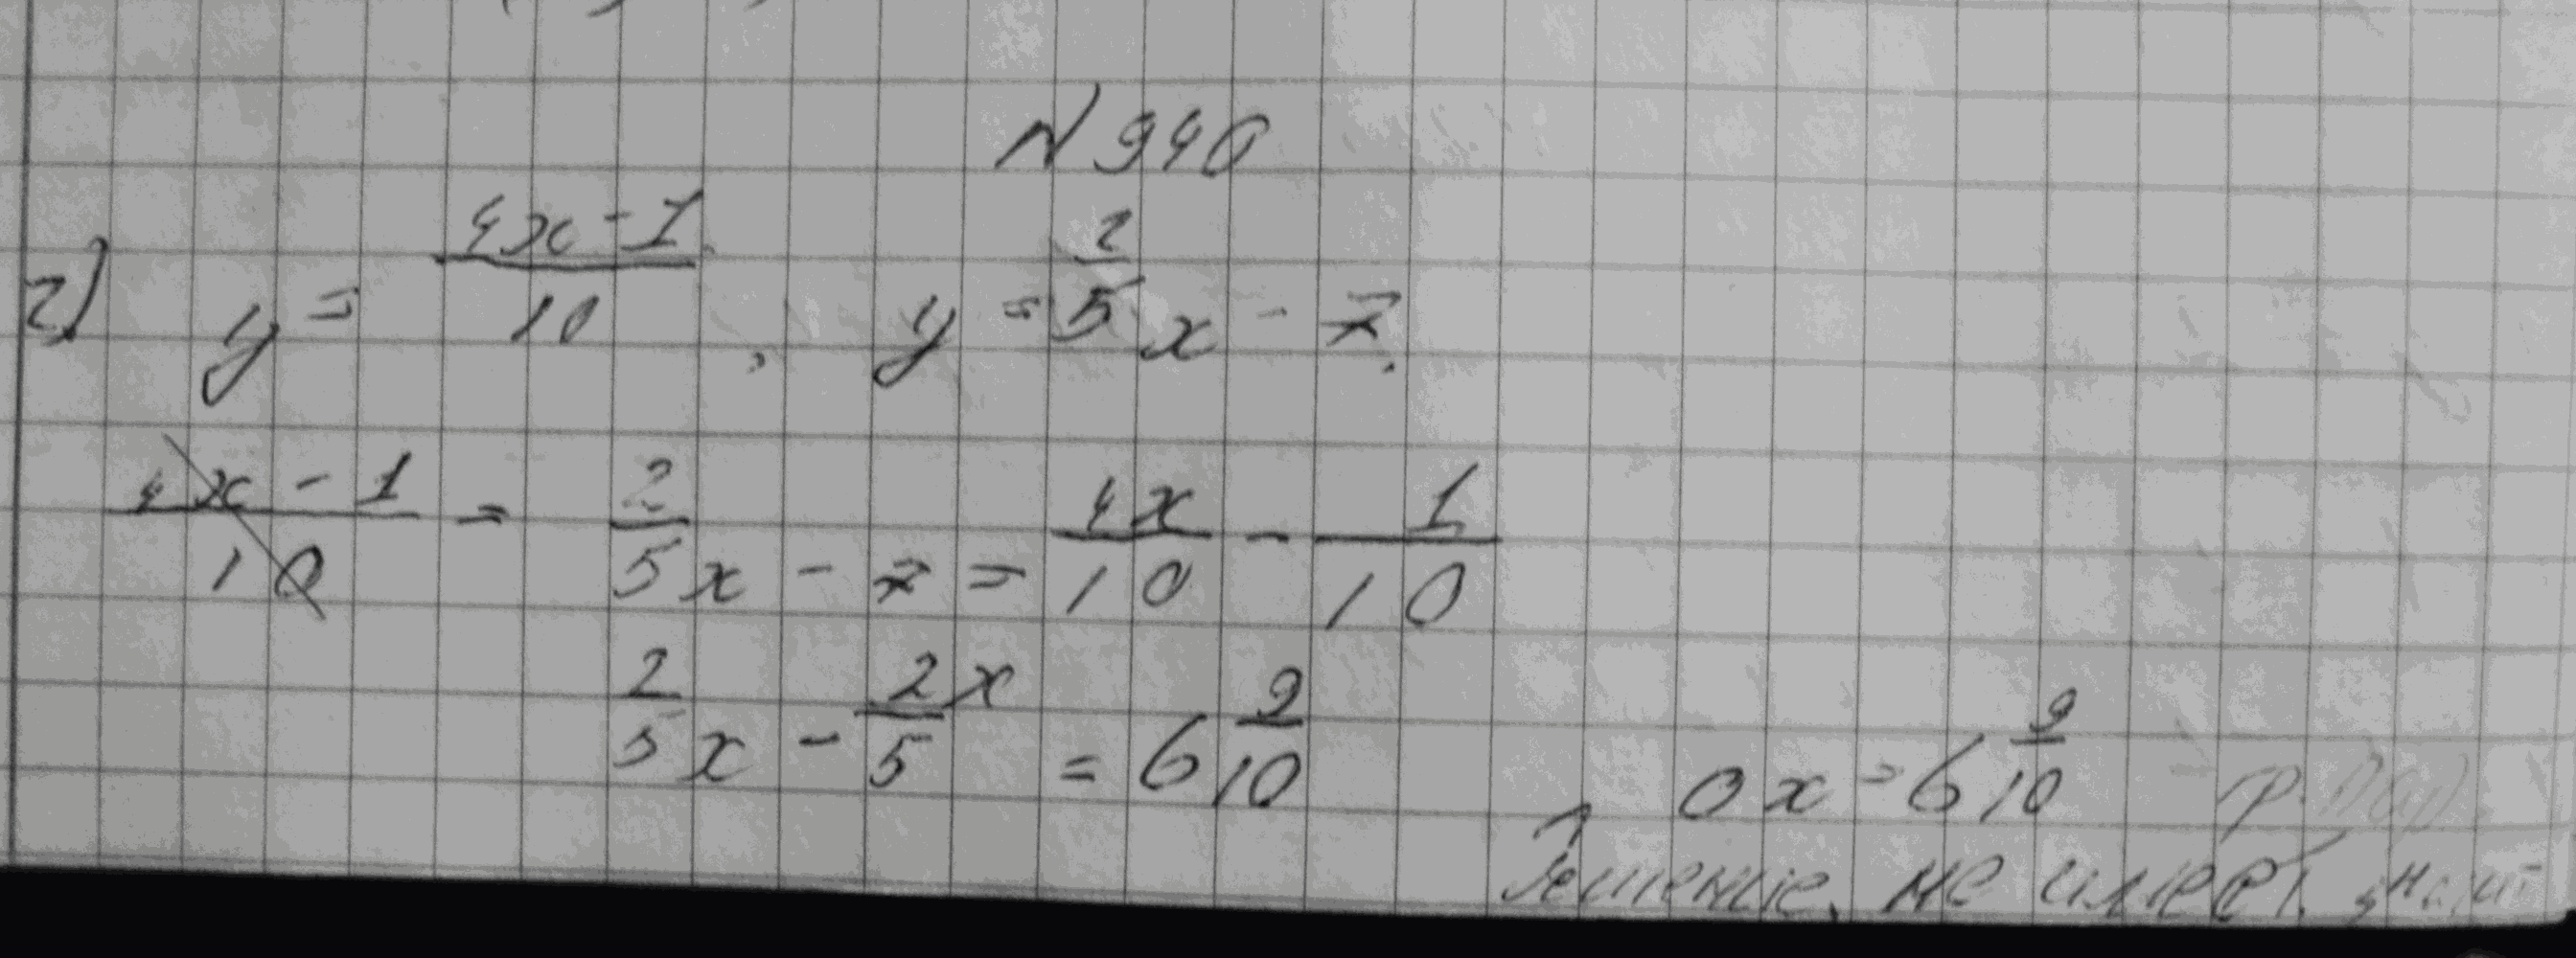 N 940
г) y = (4x - 1)/10, y = 2/5 x - 7.
(4x - 1)/10 = 2/5 x - 7 = 4x/10 - 1/10
2/5 x - 2/5 x = 6 9/10 0x = 6 9/10
Решение не имеет,